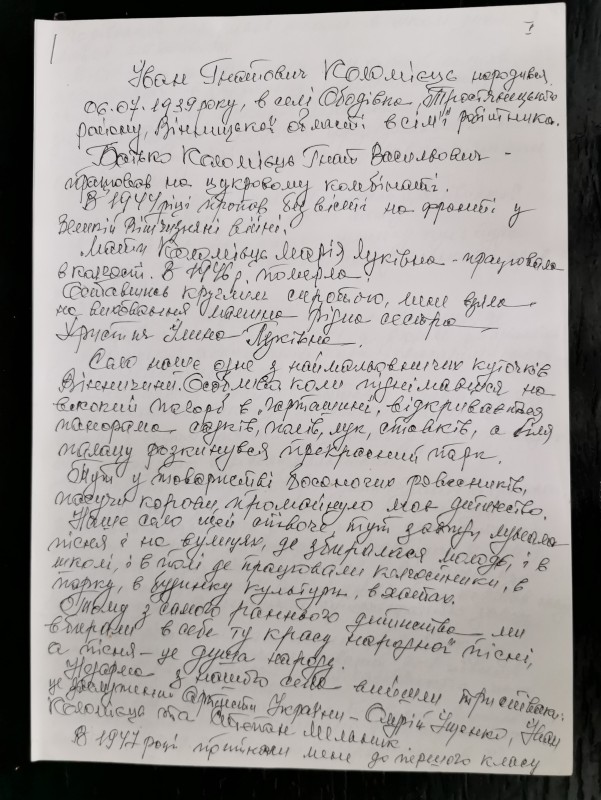 I
Іван Гнатович Коломієць народився
06.07.1939 року, в селі Ободівка, Тростянецького
району, Вінницької області в сім'ї робітника.
Батько Коломієць Гнат Васильович -
працював на цукровому комбінаті.
В 1944 році пропав без вісті на фронті у
Великій Вітчизняній війні.
Мати Коломієць Марія Луківна - працювала
в колгоспі. В 1946 р. померла.
Оставшись круглим сиротою, мене взяла
на виховання мамина рідна сестра
Христич Улина Луківна.
Село наше одне з наймальовничих куточків
Вінничини. Особливо коли піднімаєшся на
високий пагорб в „Чорташині", відкривається
панорама садків, полів, лук, ставків, а біля
палацу розкинувся прекрасний парк.
Тут у товаристві босоногих ровесників,
пасучи корови, промайнуло моє дитинство.
Наше село ще й співоче, тут завжди лунала
пісня і на вулицях, де збиралася молодь, і в
школі, і в полі де працювали колгоспники, в
парку, в будинку культури, в хатах.
Отому з самого раннього дитинства ми
вбирали в себе ту красу народної пісні,
а пісня - це душа народу.
Недарма з нашого села вийшли три співаки:
це заслужений артисти України - Андрій Іщенко, Іван
Коломієць та Степан Мельник.
В 1947 році прийняли мене до першого класу